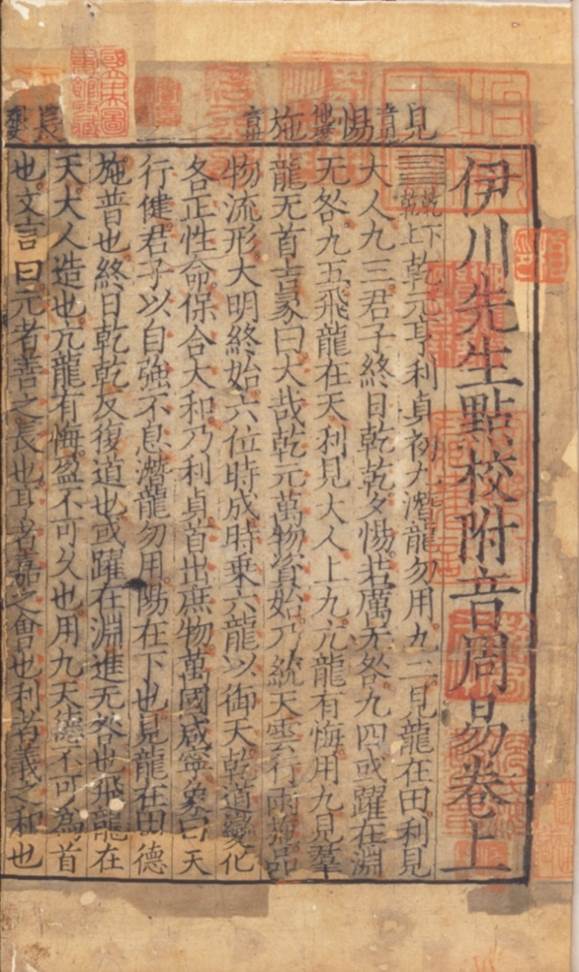 伊川先生點校附音周易卷上
見
惕
施
長
䷀乾下乾上乾元亨利貞初九潛龍勿用九二見龍在田利見
大人九三君子終日乾乾夕惕若厲无咎九四或躍在淵
无咎九五飛龍在天利見大人上九亢龍有悔用九見羣
龍无首吉彖曰大哉乾元萬物資始乃統天雲行雨施品
物流形大明終始六位時成時乘六龍以御天乾道變化
各正性命保合大和乃利貞首出庶物萬國咸寧象曰天
行健君子以自強不息潛龍勿用陽在下也見龍在田德
施普也終日乾乾反復道也或躍在淵進无咎也飛龍在
天大人造也亢龍有悔盈不可久也用九天德不可為首
也文言曰元者善之長也亨者嘉之會也利者義之和也